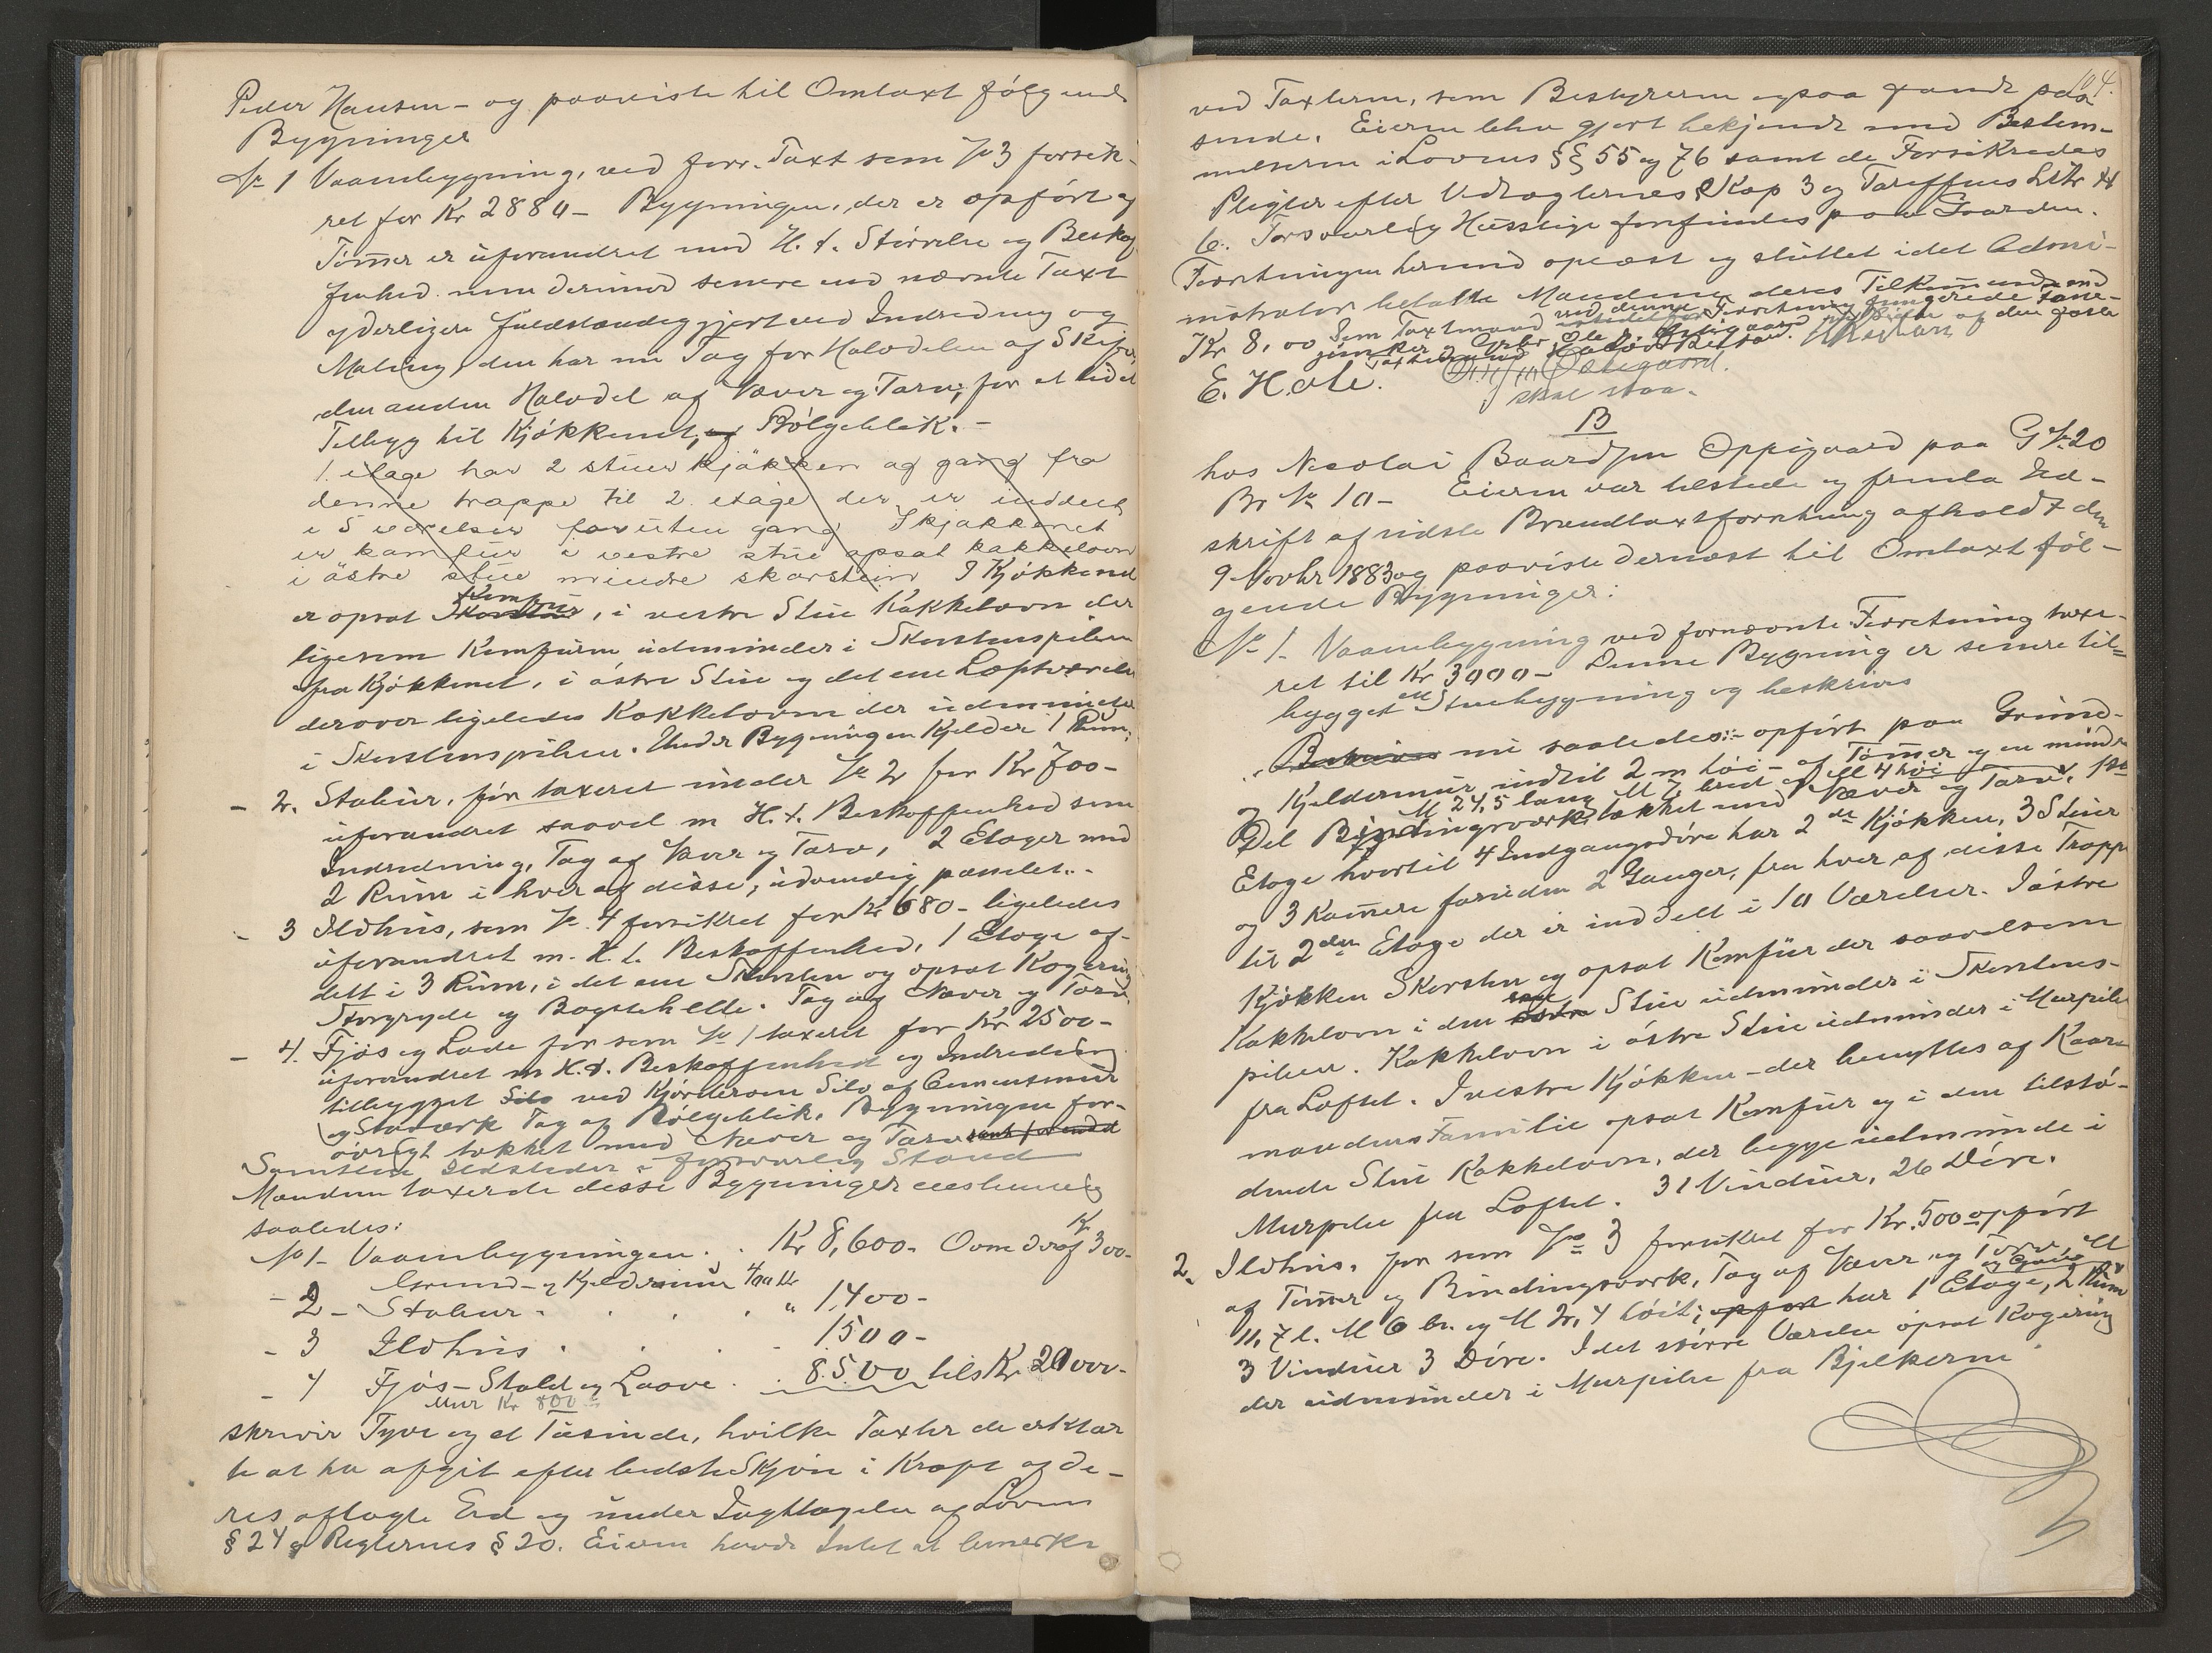 Peder Hansen - og paaviste til Omtaxt følgende
Bygninger
No 1 Vaanbygning, ved forr. Taxt som No 3 forsik-
ret for Kr 2880 - Bygningen, der er opført af
Tømer er uforandret med H. t. Størrelse og Beskaf
fenhed. men derimod senere end nævnte Taxt
yderligere fuldstændiggjort ved Indredning og
Maling, den har nu Tag for Halvdelen af Skifer,
den anden Halvdel af Næver og Tørv; for et lidet
Tilbygg til Kjøkkenet, af Bølgeblik. -
1. etage har 2 stuer kjøkken og gang fra
denne trappe til 2. etage der er inddelt
i 5 værelser foruten gang I kjøkkenet
er komfur i vestre stue opsat kakkelovn
i østre stue mindre skorstein I Kjøkkenet
Komfur
er opsat Skorsten, i vestre Stue Kakkelovn der
ligesom Komfuren udmunder i Skorstenspiben
fra Kjøkkenet, i østre Stue og det ene Loftværelse
derover ligeledes Kakkelovn der udmunder
i Skorstenspiben. Under Bygningen Kjelder 1 Rum.
- 2. Stabur, før taxeret under No 2 for Kr 700 -
uforandret saavel m H. t. Beskaffenhed som
Indredning, Tag af Næver og Tørv, 2 Etager med
2 Rum i hver af disse, udvendig panelet. -
- 3 Ildhus, som No 4 forsikret for Kr 680 - ligeledes
uforandret m. H. t. Beskaffenhed, 1 Etage af-
delt i 3 Rum, i det ene Skorsten og opsat Kogering
Storgryde og Bagstehelle. Tag af Næver og Tørv.
- 4. Fjøs og Lade før som No 1 taxeret for Kr 2500 -
uforandret m H. t. Beskaffenhed og Indredning
tilbygget Silo ved Kjørebroen Silo af Cementmur
og Stavverk Tag af Bølgeblik. Bygningen for-
øvrigt tækket med Næver og Tørv
Samtlige Ildsteder i forsvarlig Stand
Mændene taxerede disse Bygninger eenstemmig
saaledes:
No 1 - Vaanbygningen . . Kr 8,600 - Ovne deraf Kr 300 -
Grund - og Kjeldermur 400 Kr
- 2 - Stabur . . . . " 1,400 -
- 3 Ildhus . . . - 1500 -
- 4 Fjøs - Stald og Laave . . 8.500 tils Kr. 20000 -
Mur Kr 800 -
skriver Tyve og et Tusinde, hvilke Taxter de erklær
te at ha afgit efter bedste Skjøn i Kraft af de-
res aflagte Ed og under Iagttagelse af Lovens
§ 24 og Reglernes § 20. Eieren havde Intet at bemerke
104.
ved Taxterne, som Bestyreren ogsaa fandt pas-
sende. Eieren blev gjort bekjendt med Bestem-
melserne i Lovens §§ 55 og 76 samt de Forsikredes
Pligter efter Vedtægternes Kap 3 og Tariffens Litr H
6. Forsvarlig Husstige forefindes paa Gaarden.
Forretningen hermed oplæst og sluttet idet Admi-
nistrator betalte Mændene deres Tilkommende med
Kr 8,00 Som Taxtmand ved denne Forretning fungerede
E. Hole.
skal staa.
B
hos Nicolai Baardsen Oppigaard paa G No 20
Br No 10 - Eieren var tilstede og fremla Ud-
skrift af sidste Brandtaxtforretning afholdt den
9 Novbr 1883 og paaviste dernæst til Omtaxt føl-
gende Bygninger:
No 1. Vaanbygning ved fornævnte Forretning taxe-
ret til Kr 3000 - Denne Bygning er senere til-
bygget en Stuebygning og beskrives
Beskrives nu saaledes: - opført paa Grund-
og Kjeldermur indtil 2 m høi - af Tømer og en mindre
M 24,5 lang M 7 bred og M 4 høi
Del Bindingsværk, tækket med Næver og Tørv. 1ste
Etage hvortil 4 Indgangsdøre har 2de Kjøkken, 3 Stuer
og 3 Kamere foruden 2 Gange, fra hver af disse Trappe
til 2den Etage der er inddelt i 10 Værelser. I østre
Kjøkken Skorsten og opsat Komfur der saavelsom
Kakkelovn i den Stue udmunder i Skorstens-
piben. Kakkelovn i østre Stue udmunder i Murpibe
fra Loftet. I vestre Kjøkken - der benyttes af Kaar-
mandens Familie opsat Komfur og i den tilstø-
dende Stue Kakkelovn, der begge udmunde i
Murpibe fra Loftet. 31 Vinduer, 26 Døre.
2. Ildhus. før som No 3 forsikret for Kr. 500 opført
af Tømer og Bindingsverk, Tag af Næver og Tørv M
11,7 l. M 6 br. og M 2,4 høit; opført har 1 Etage, 2 Rum og Gang
3 Vinduer 3 Døre. I det større Værelse opsat Kogering
der udmunder i Murpibe fra Bjelkerne